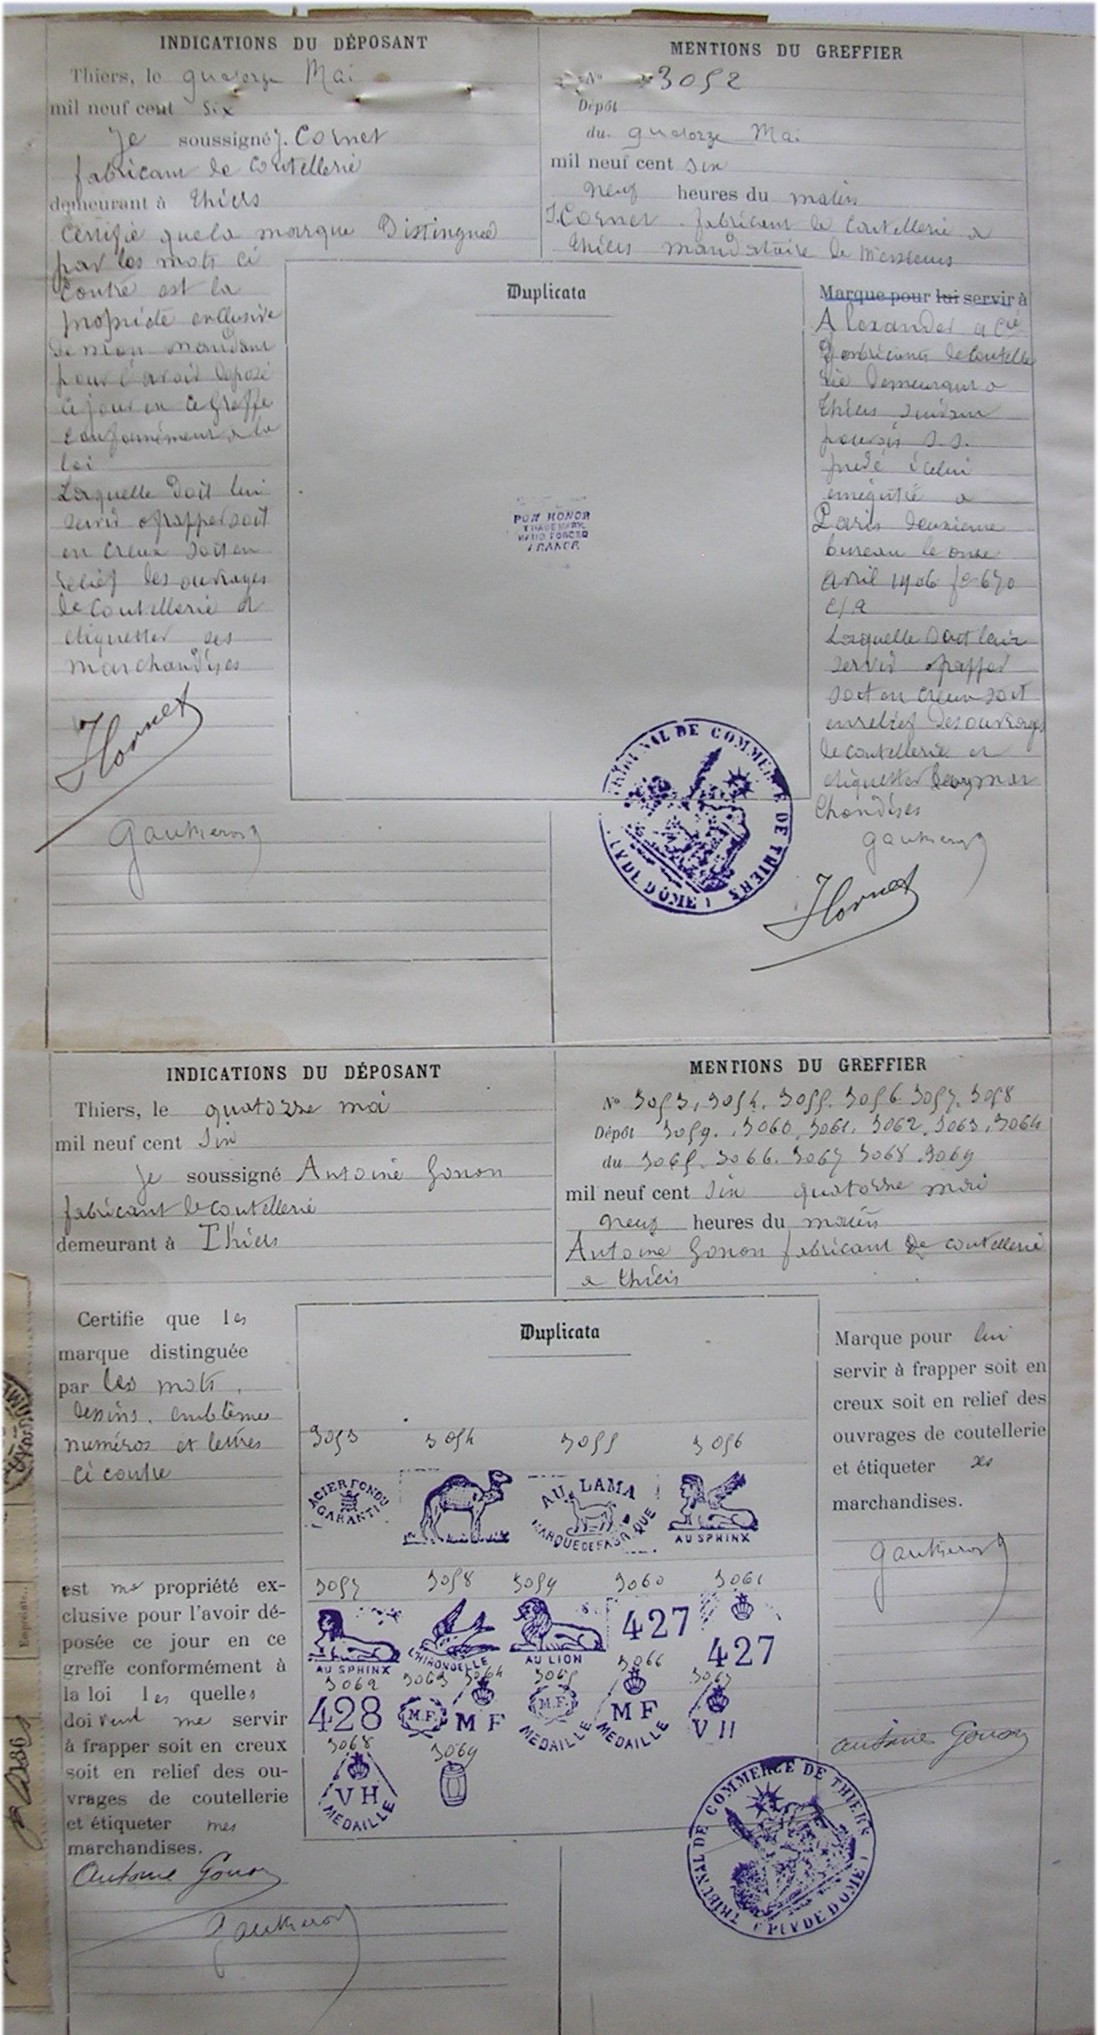 INDICATIONS DU DÉPOSANT
Thiers, le quatorze Mai
mil neuf cent six
Je soussigné J. Cornet
fabricant de Coutellerie
demeurant à Thiers
Certifie que la marque Distinguée
par les mots ci
Contre est la
propriété exclusive
de mon mandant
pour l'avoir déposé
ce jour en ce Greffe
conformément a la
loi
Laquelle doit lui
servir a frapper soit
en creux soit en
relief les ouvrages
de Coutellerie et
etiquetter ses
marchandises
JCornet
MENTIONS DU GREFFIER
No 3052
Dépôt
du quatorze Mai
mil neuf cent six
neuf heures du matin
J. Cornet fabricant de Coutellerie a
Thiers mandataire de Messieurs
Duplicata
PON HONOR
TRADE MARK
HAND FORGED
FRANCE
Marque pour lui servir à
Alexander a Cie
fabricants de Coutelle
rie demeurant a
Thiers suivant
pouvoir s.s.
privé icelui
enregistré a
Paris deuxieme
bureau le onze
avril 1906 fo 670
c/a
Laquelle doit leur
servir a frapper
soit en creux soit
en relief des ouvrages
de coutellerie et
etiquetter leurs mar
chandises
TRIBUNAL DE COMMERCE DE THIERS
( PUY DE DÔME )
JCornet
INDICATIONS DU DÉPOSANT
Thiers, le quatorze mai
mil neuf cent six
Je soussigné Antoine Gonon
fabricant de coutellerie
demeurant à Thiers
MENTIONS DU GREFFIER
No 3053, 3054, 3055, 3056, 3057, 3058
Dépôt 3059, 3060, 3061, 3062, 3063, 3064
du 3065, 3066, 3067, 3068, 3069
mil neuf cent six quatorze mai
neuf heures du matin
Antoine Gonon fabricant de coutellerie
a thiers
Certifie que les
marque distinguée
par les mots,
dessins, emblèmes
numéros et lettres
ci contre
est ma propriété ex-
clusive pour l'avoir dé-
posée ce jour en ce
greffe conformément à
la loi les quelles
doivent me servir
à frapper soit en creux
soit en relief des ou-
vrages de coutellerie
et étiqueter mes
marchandises.
Antoine Gonon
Duplicata
3053 3054 3055 3056
ACIER FONDU
GARANTI
AU LAMA
MARQUE DE FABRIQUE
AU SPHINX
3057 3058 3059 3060 3061
AU SPHINX
L'HIRONDELLE
AU LION
427
427
3062 3063 3064 3065 3066 3067
428
M.F.
M F
M.F.
MEDAILLE
M F
MEDAILLE
V H
3068 3069
V H
MEDAILLE
Marque pour lui
servir à frapper soit en
creux soit en relief des
ouvrages de coutellerie
et étiqueter ses
marchandises.
Antoine Gonon
TRIBUNAL DE COMMERCE DE THIERS
( PUY DE DÔME )